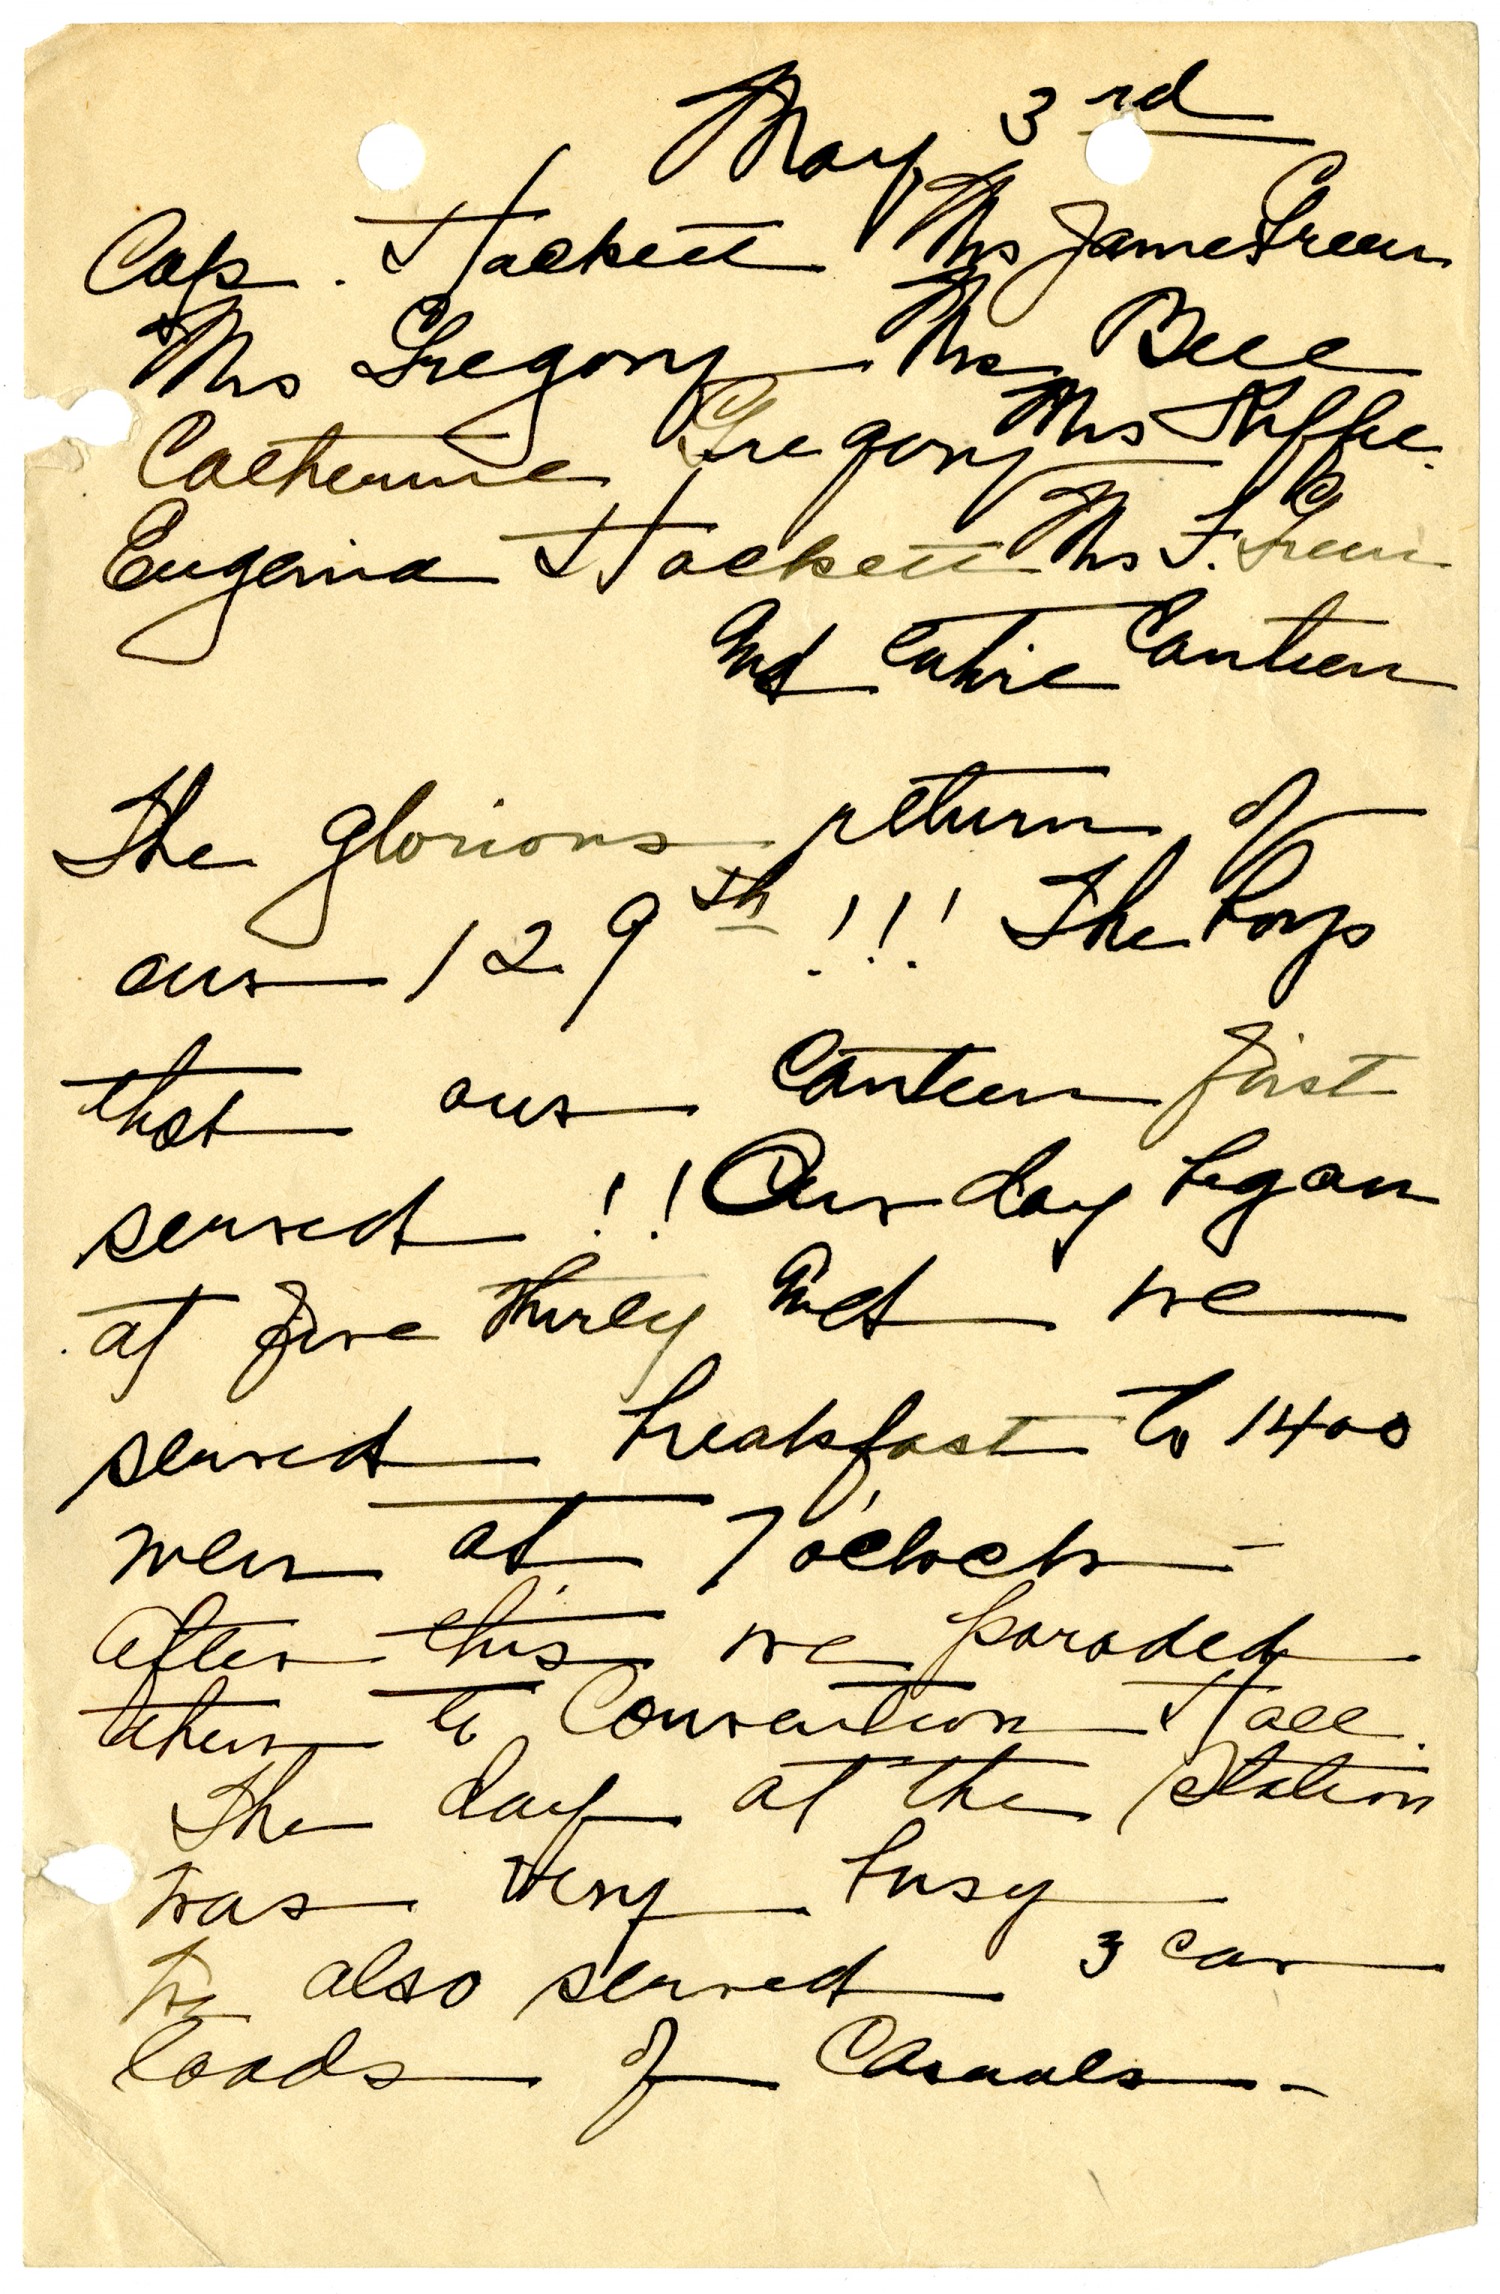 May 3rd
Cap. Hackett Mrs James Green
Mrs Gregory Mrs Bell
Catherine Gregory Mrs
Eugenia Hackett Mrs F. Green
And Entire Canteen
The glorious return of
our 129th !!! The boys
that our Canteen first
served !! Our day began
at five thirty And we
served breakfast to 1400
men at 7 o'clock -
after this we paraded
them to Convention Hall.
The day at the Station
was very busy
We also served 3 car
loads of Casuals -